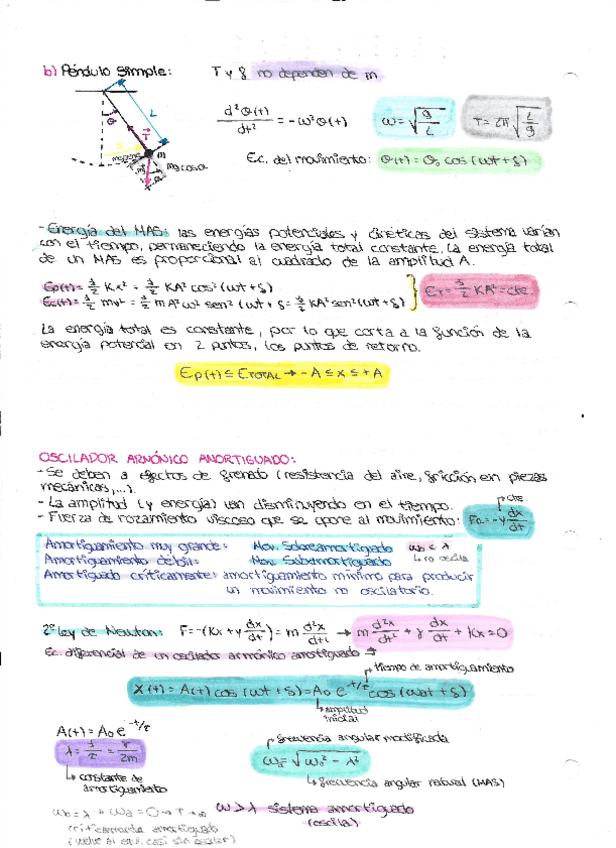 b) Péndulo simple: T y f no dependen de m
d²θ(t)/dt² = -ω²θ(t) ω = √(g/L) T = 2π √(L/g)
θ L T m mg cos α
Ec. del movimiento: θ(t) = θ₀ cos (ωt + δ)
- Energía del MAS: las energías potenciales y cinéticas del sistema varían
con el tiempo, permaneciendo la energía total constante. La energía total
de un MAS es proporcional al cuadrado de la amplitud A.
Ep(t) = 1/2 Kx² = 1/2 KA² cos² (ωt + δ)
Ec(t) = 1/2 mv² = 1/2 m A² ω² sen² (ωt + δ = 1/2 KA² sen² (ωt + δ) } ET = 1/2 KA² = cte
La energía total es constante, por lo que corta a la función de la
energía potencial en 2 puntos, los puntos de retorno.
Ep(t) ≤ ETOTAL → -A ≤ x ≤ +A
OSCILADOR ARMÓNICO AMORTIGUADO:
- Se deben a efectos de frenado (resistencia del aire, fricción en piezas
mecánicas,...).
- La amplitud (y energía) van disminuyendo en el tiempo.
- Fuerza de rozamiento viscoso que se opone al movimiento: Fa = -γ dx/dt
cte
Amortiguamiento muy grande: Mov. Sobreamortiguado ω₀ < λ
Amortiguamiento débil: Mov. Subamortiguado ↳ no oscila
Amortiguado críticamente: amortiguamiento mínimo para producir
un movimiento no oscilatorio.
2ª Ley de Newton: F = -(Kx + γ dx/dt) = m d²x/dt² → m d²x/dt² + γ dx/dt + Kx = 0
Ec. diferencial de un oscilador armónico amortiguado
tiempo de amortiguamiento
X(t) = A(t) cos (ωt + δ) = A₀ e^-t/τ cos (ωat + δ)
↳ amplitud
inicial
A(t) = A₀ e^-t/τ
frecuencia angular modificada
λ = 1/τ = γ/2m
ωa = √(ω₀² - λ²)
↳ constante de
amortiguamiento
↳ frecuencia angular natural (MAS)
ω₀ = λ → ωa = 0 → T → ∞
ω > λ sistema amortiguado
(oscila)
críticamente amortiguado
(vuelve al equi. casi sin oscilar)